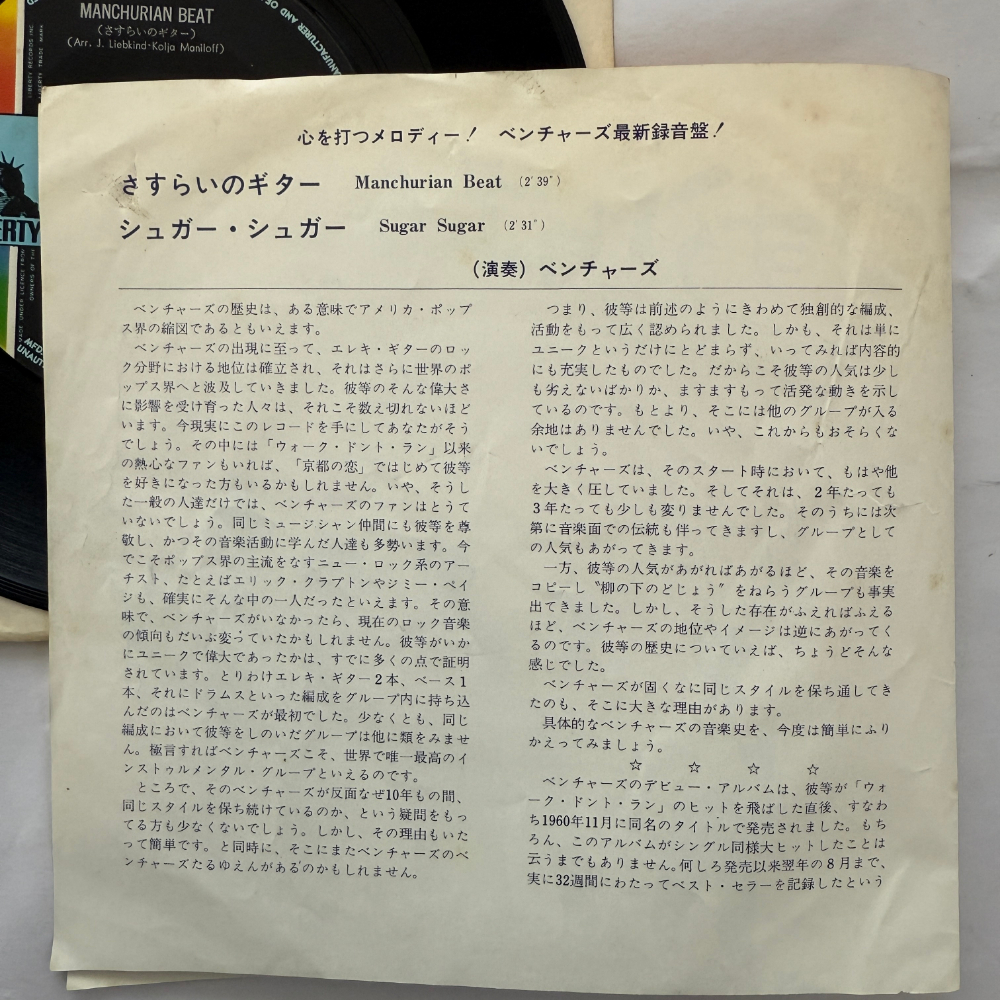 MANCHURIAN BEAT
(さすらいのギター)
(Arr. J. Liebkind-Kolja Maniloff)
MANUFACTURER AND OF
LIBERTY RECORDS INC
LIBERTY TRADE MARK
ERTY
MADE UNDER LICENCE FROM
OWNERS OF THE
MFD.
UNAUT
心を打つメロディー! ベンチャーズ最新録音盤!
さすらいのギター Manchurian Beat (2'39")
シュガー・シュガー Sugar Sugar (2'31")
(演奏) ベンチャーズ
ベンチャーズの歴史は、ある意味でアメリカ・ポップ
ス界の縮図であるともいえます。
ベンチャーズの出現に至って、エレキ・ギターのロッ
ク分野における地位は確立され、それはさらに世界のポ
ップス界へと波及していきました。彼等のそんな偉大さ
に影響を受け育った人々は、それこそ数え切れないほど
います。今現実にこのレコードを手にしてあなたがそう
でしょう。その中には「ウォーク・ドント・ラン」以来
の熱心なファンもいれば、「京都の恋」ではじめて彼等
を好きになった方もいるかもしれません。いや、そうし
た一般の人達だけでは、ベンチャーズのファンはとうて
いないでしょう。同じミュージシャン仲間にも彼等を尊
敬し、かつその音楽活動に学んだ人達も多勢います。今
でこそポップス界の主流をなすニュー・ロック系のアー
チスト、たとえばエリック・クラプトンやジミー・ペイ
ジも、確実にそんな中の一人だったといえます。その意
味で、ベンチャーズがいなかったら、現在のロック音楽
の傾向もだいぶ変っていたかもしれません。彼等がいか
にユニークで偉大であったかは、すでに多くの点で証明
されています。とりわけエレキ・ギター2本、ベース1
本、それにドラムスといった編成をグループ内に持ち込
んだのはベンチャーズが最初でした。少なくとも、同じ
編成において彼等をしのいだグループは他に類をみませ
ん。極言すればベンチャーズこそ、世界で唯一最高のイ
ンストゥルメンタル・グループといえるのです。
ところで、そのベンチャーズが反面なぜ10年もの間、
同じスタイルを保ち続けているのか、という疑問をもっ
てる方も少なくないでしょう。しかし、その理由もいた
って簡単です。と同時に、そこにまたベンチャーズのベ
ンチャーズたるゆえんがあるのかもしれません。
つまり、彼等は前述のようにきわめて独創的な編成、
活動をもって広く認められました。しかも、それは単に
ユニークというだけにとどまらず、いってみれば内容的
にも充実したものでした。だからこそ彼等の人気は少し
も劣えないばかりか、ますますもって活発な動きを示し
ているのです。もとより、そこには他のグループが入る
余地はありませんでした。いや、これからもおそらくな
いでしょう。
ベンチャーズは、そのスタート時において、もはや他
を大きく圧していました。そしてそれは、2年たっても
3年たっても少しも変りませんでした。そのうちには次
第に音楽面での伝統も伴ってきますし、グループとして
の人気もあがってきます。
一方、彼等の人気があがればあがるほど、その音楽を
コピーし〝柳の下のどじょう〟をねらうグループも事実
出てきました。しかし、そうした存在がふえればふえる
ほど、ベンチャーズの地位やイメージは逆にあがってく
るのです。彼等の歴史についていえば、ちょうどそんな
感じでした。
ベンチャーズが固くなに同じスタイルを保ち通してき
たのも、そこに大きな理由があります。
具体的なベンチャーズの音楽史を、今度は簡単にふり
かえってみましょう。
☆ ☆ ☆ ☆
ベンチャーズのデビュー・アルバムは、彼等が「ウォ
ーク・ドント・ラン」のヒットを飛ばした直後、すなわ
ち1960年11月に同名のタイトルで発売されました。もち
ろん、このアルバムがシングル同様大ヒットしたことは
云うまでもありません。何しろ発売以来翌年の8月まで、
実に32週間にわたってベスト・セラーを記録したという